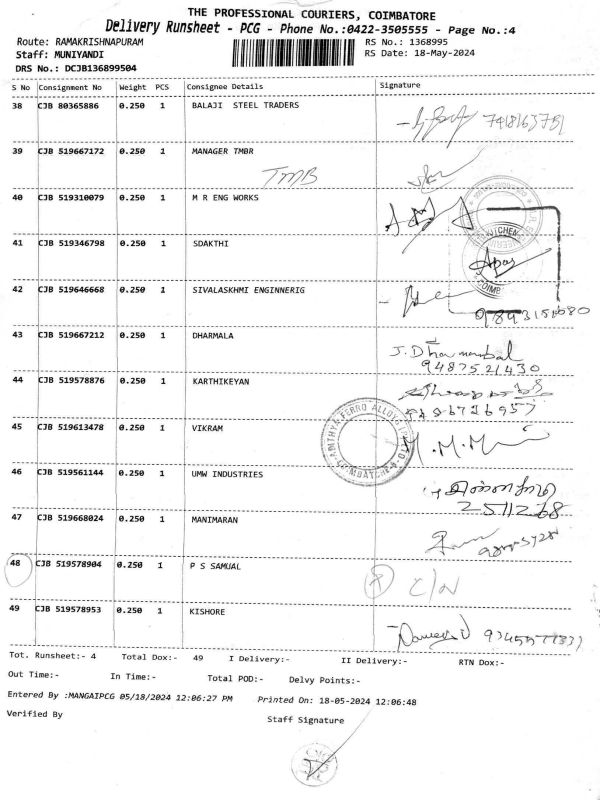 THE PROFESSIONAL COURIERS, COIMBATORE
Delivery Runsheet - PCG - Phone No.:0422-3505555 - Page No.:4
Route: RAMAKRISHNAPURAM RS No.: 1368995
Staff: MUNIYANDI RS Date: 18-May-2024
DRS No.: DCJB136899504
S No Consignment No Weight PCS Consignee Details Signature
38 CJB 80365886 0.250 1 BALAJI STEEL TRADERS
39 CJB 519667172 0.250 1 MANAGER TMBR
TMB
40 CJB 519310079 0.250 1 M R ENG WORKS
41 CJB 519346798 0.250 1 SDAKTHI
42 CJB 519646668 0.250 1 SIVALASKHMI ENGINNERIG
43 CJB 519667212 0.250 1 DHARMALA
J. Dharmambal
9487521430
44 CJB 519578876 0.250 1 KARTHIKEYAN
45 CJB 519613478 0.250 1 VIKRAM
ADITHYA FERRO ALLOYS (P) LTD
COIMBATORE
46 CJB 519561144 0.250 1 UMW INDUSTRIES
2511268
47 CJB 519668024 0.250 1 MANIMARAN
48 CJB 519578904 0.250 1 P S SAMUAL
C/N
49 CJB 519578953 0.250 1 KISHORE
Tot. Runsheet:- 4 Total Dox:- 49 I Delivery:- II Delivery:- RTN Dox:-
Out Time:- In Time:- Total POD:- Delvy Points:-
Entered By :MANGAIPCG 05/18/2024 12:06:27 PM Printed On: 18-05-2024 12:06:48
Verified By Staff Signature